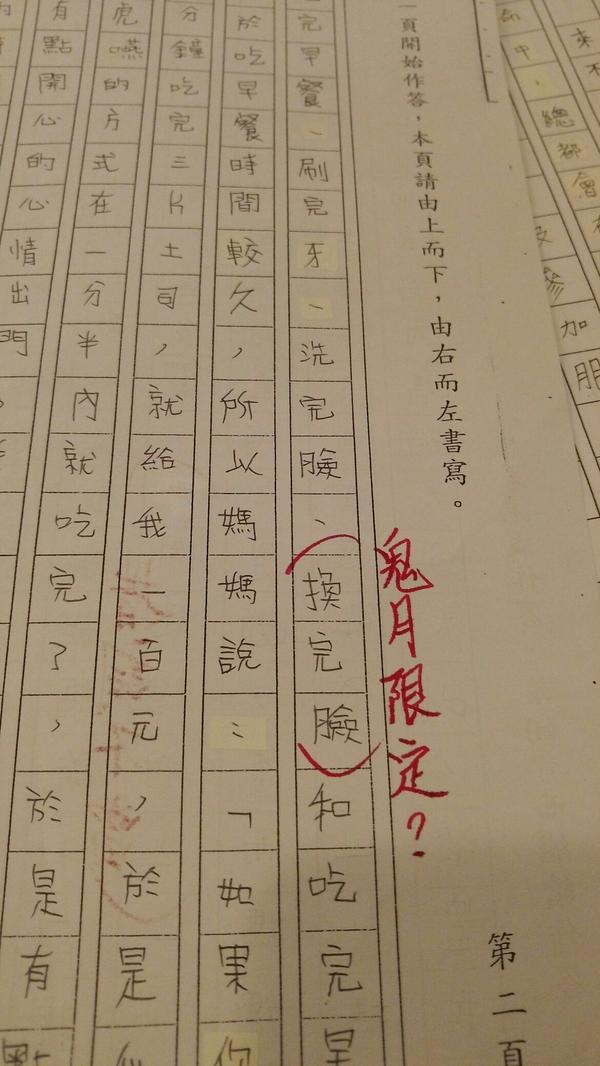 來
總都會
加服
一頁開始作答，本頁請由上而下，由右而左書寫。
第二頁
鬼月限定？
完早餐、刷完牙、洗完臉、換完臉和吃完早
於吃早餐時間較久，所以媽媽說：「如果你
分鐘吃完三片土司，就給我一百元，於是
虎嚥的方式在一分半內就吃完了，於是有點
有點開心的心情出門